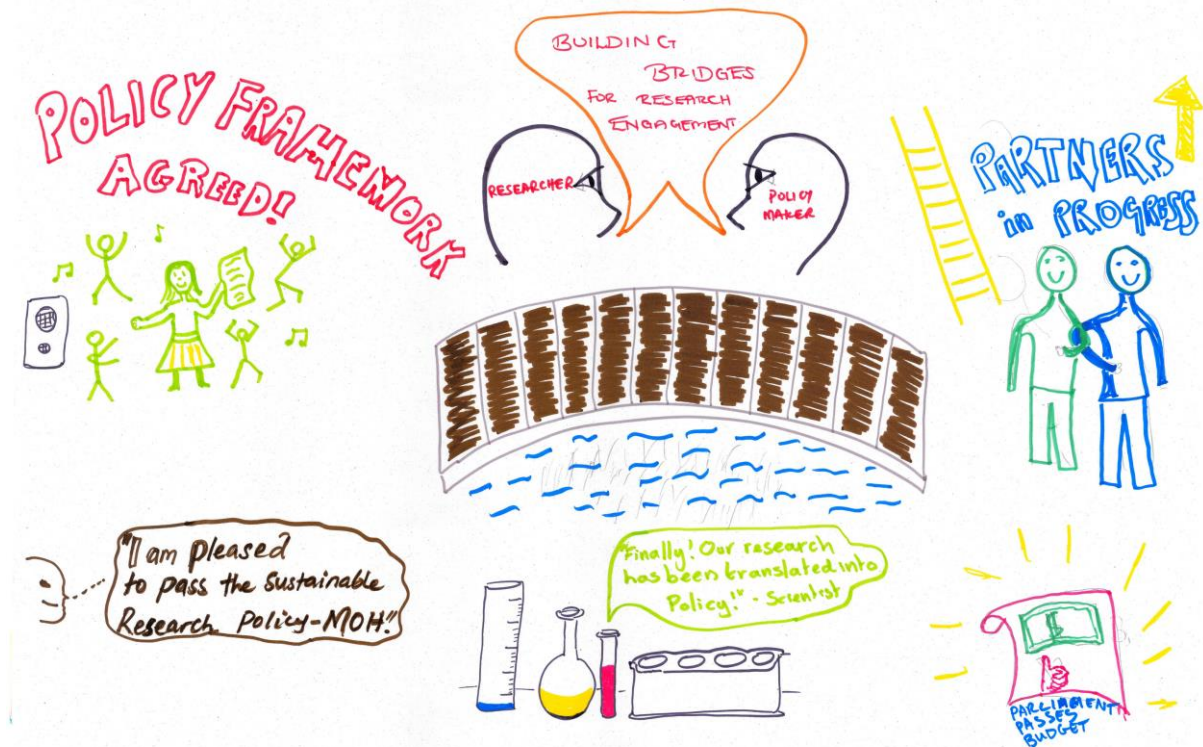 POLICY FRAMEWORK
AGREED!
BUILDING
BRIDGES
FOR RESEARCH
ENGAGEMENT
RESEARCHER
POLICY
MAKER
PARTNERS
in PROGRESS
"I am pleased
to pass the sustainable
Research Policy-MOH."
"Finally! Our research
has been translated into
Policy!" - Scientist
PARLIAMENT
PASSES
BUDGET